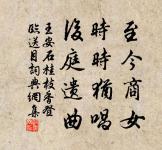 至今商女
時時猶唱
後庭遺曲
王安石桂枝香登
臨送目詞典網集